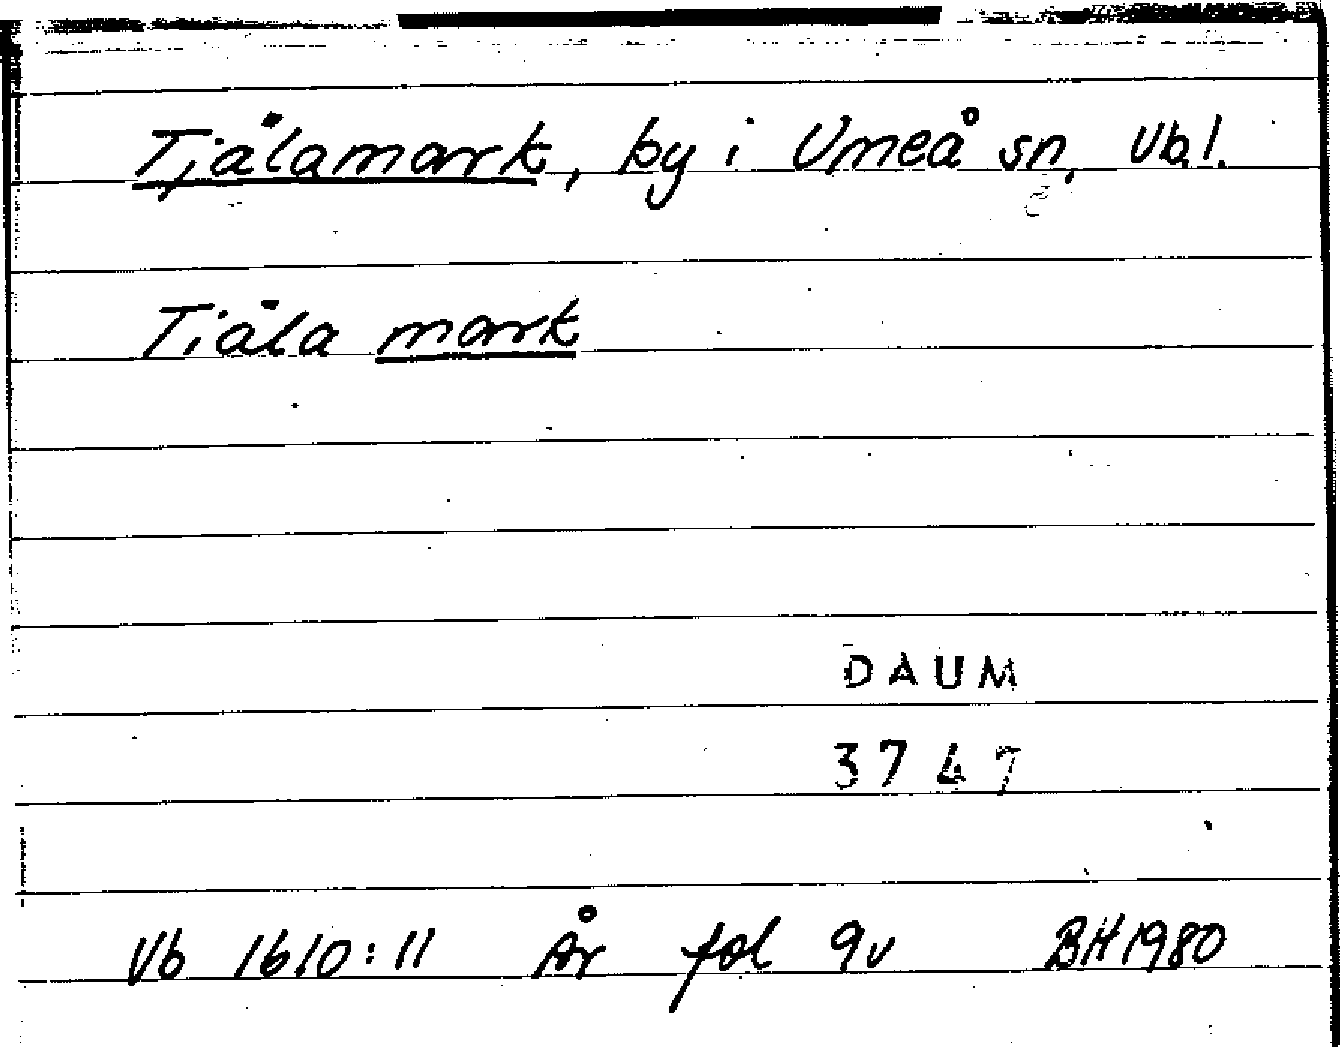 Tjälamark, by i Umeå sn, Vb l.
Tiäla mark
DAUM
3747
Vb 1610:11 År fol 9v BH 1980